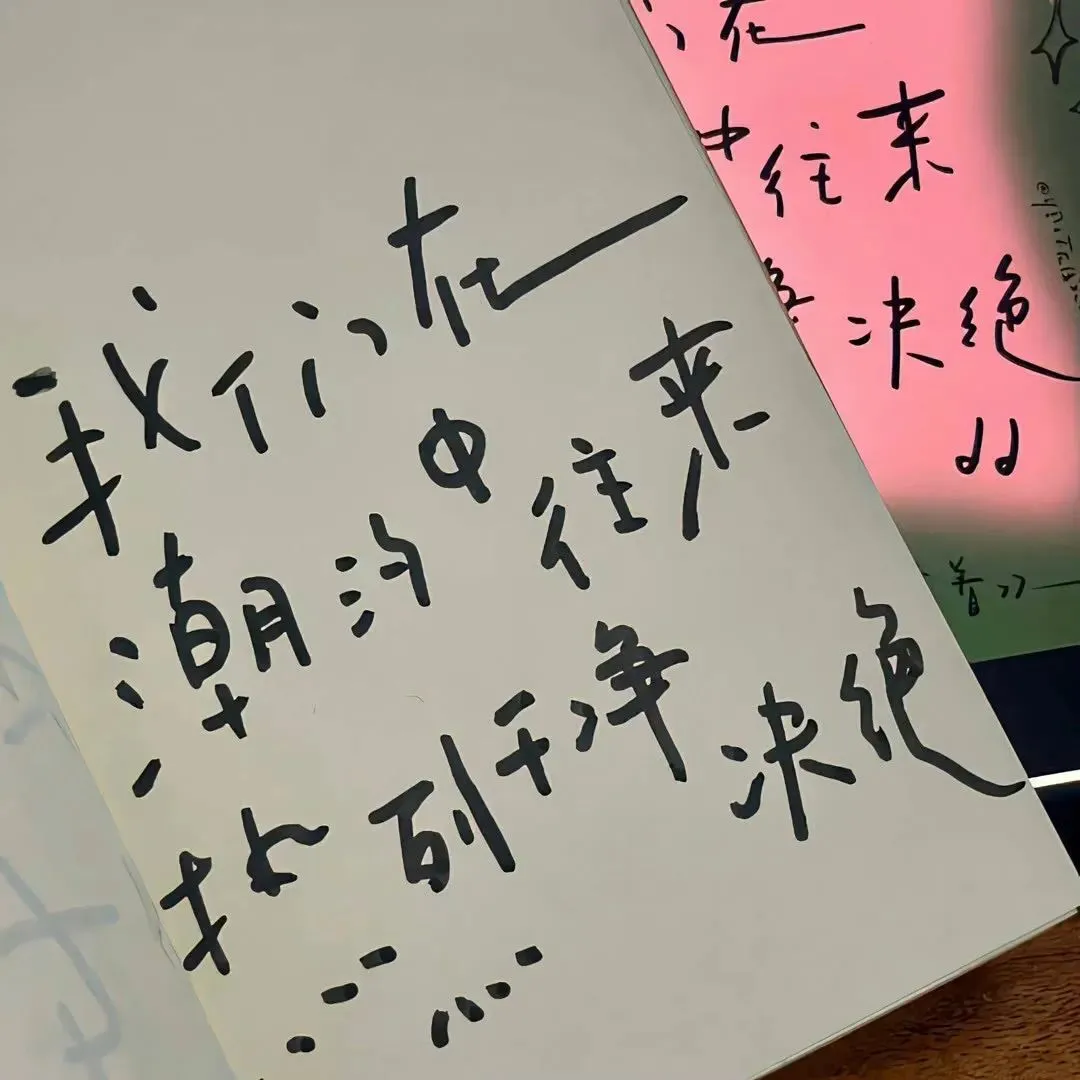 我们在
潮汐中往来
找到干净决绝
……
在
中往来
决绝
着